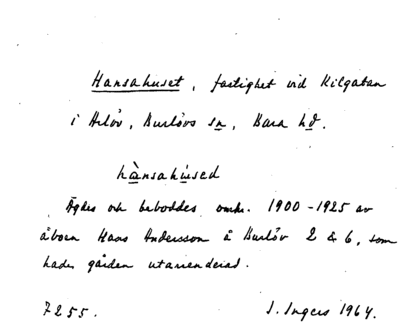 Hansahuset, fastighet vid Kilgatan
i Arlöv, Burlövs sn, Bara hd.
hànsahúsed
Ägdes och beboddes omkr. 1900-1925 av
åboen Hans Andersson å Burlöv 2 & 6, som
hade gården utarrenderad.
7255. I. Ingers 1964.